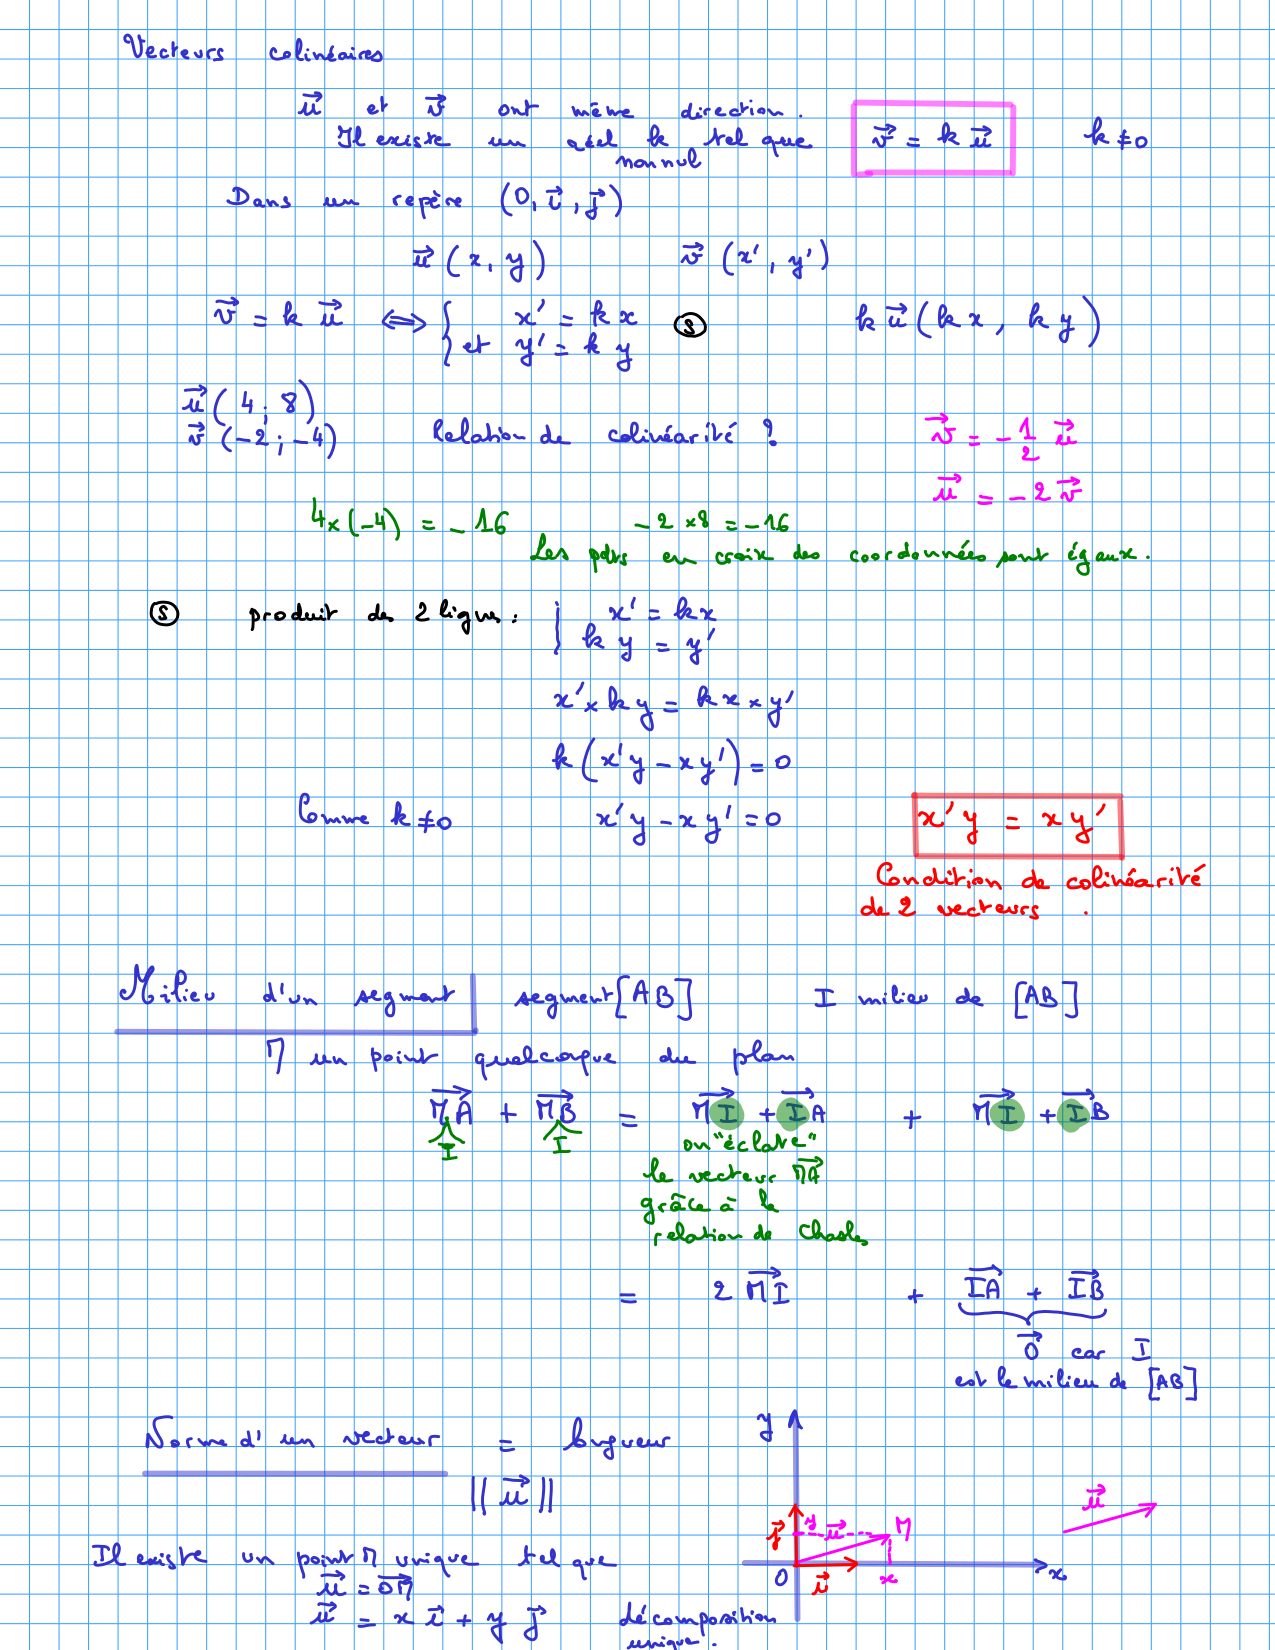 Vecteurs colinéaires
u⃗ et v⃗ ont même direction.
Il existe un réel k tel que v⃗ = k u⃗ k ≠ 0
non nul
Dans un repère (O, i⃗, j⃗)
u⃗ (x, y) v⃗ (x', y')
v⃗ = k u⃗ ⟺ { x' = k x Ⓢ k u⃗ (k x, k y)
et y' = k y
u⃗ (4; 8)
v⃗ (-2; -4) Relation de colinéarité ? v⃗ = -1/2 u⃗
u⃗ = -2 v⃗
4 × (-4) = -16 -2 × 8 = -16
Les pdts en croix des coordonnées sont égaux.
Ⓢ produit des 2 lignes : { x' = k x
k y = y'
x' × k y = k x × y'
k (x'y - x y') = 0
Comme k ≠ 0 x'y - x y' = 0 x'y = x y'
Condition de colinéarité
de 2 vecteurs .
Milieu d'un segment segment [AB] I milieu de [AB]
M un point quelconque du plan
MA⃗ + MB⃗ = MI⃗ + IA⃗ + MI⃗ + IB⃗
I I on "éclate"
le vecteur MA⃗
grâce à la
relation de Chasles
= 2 MI⃗ + IA⃗ + IB⃗
0⃗ car I
est le milieu de [AB]
Norme d'un vecteur = longueur
|| u⃗ ||
y
u⃗
j⃗ y u⃗ M
O i⃗ x x
Il existe un point M unique tel que
u⃗ = OM⃗
u⃗ = x i⃗ + y j⃗ décomposition
unique.